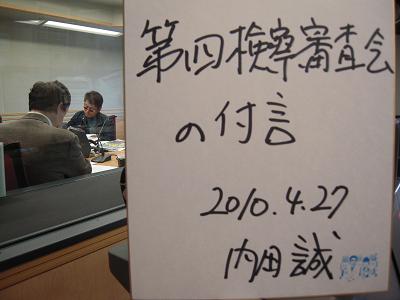 第四検察審査会
の付言
2010.4.27
内田誠